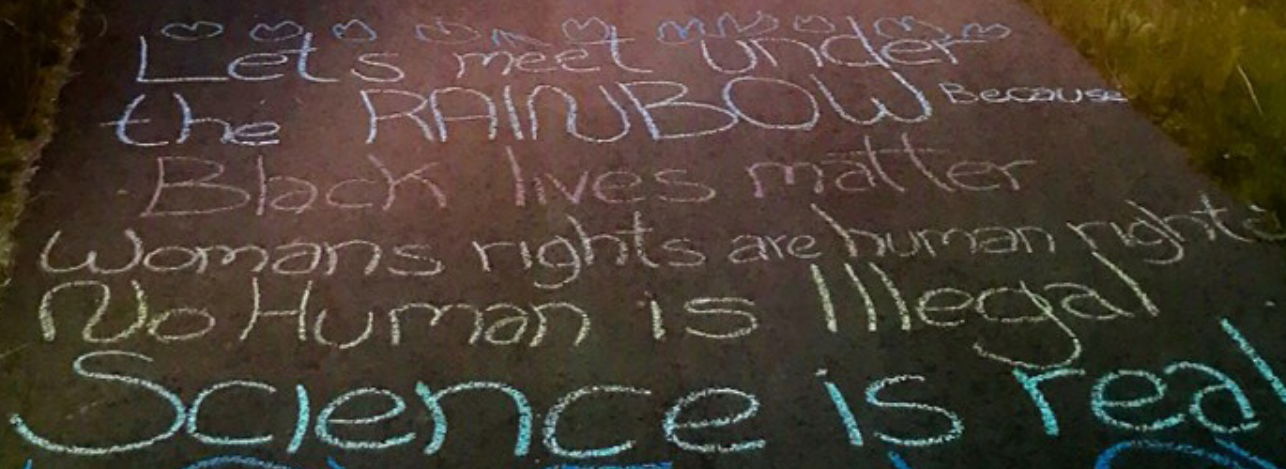 Lets meet under
the RAINBOW Because
Black lives matter
Womans rights are human rights
No Human is Illegal
Science is real